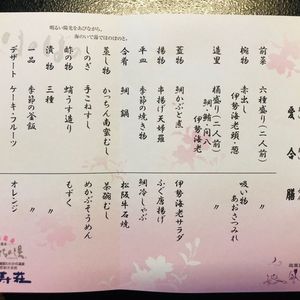 愛合膳
前菜 六種盛り(二人前) 〃
椀物 赤出し 伊勢海老頭・葱 吸い物 あおさつみれ
造里 桶盛り(二人前) 伊勢海老 鯛 鮪 間八 〃
蓋物 鯛かぶと煮 伊勢海老サラダ
揚物 季節揚げ天婦羅 ふぐ唐揚げ
平皿 季節の焼き物 鯛冷しゃぶ
合肴 鯛鍋 松阪牛石焼
蒸し物 かっちん南蛮むし 茶碗むし
しのぎ 手こねすし めかぶそうめん
酢の物 蛸うす造り もずく
漬物 三種 〃
一品 季節の釜飯 〃
デザート ケーキ・フルーツ オレンジ
明るい陽光をあびながら、
海のいで湯でほのぼのと。